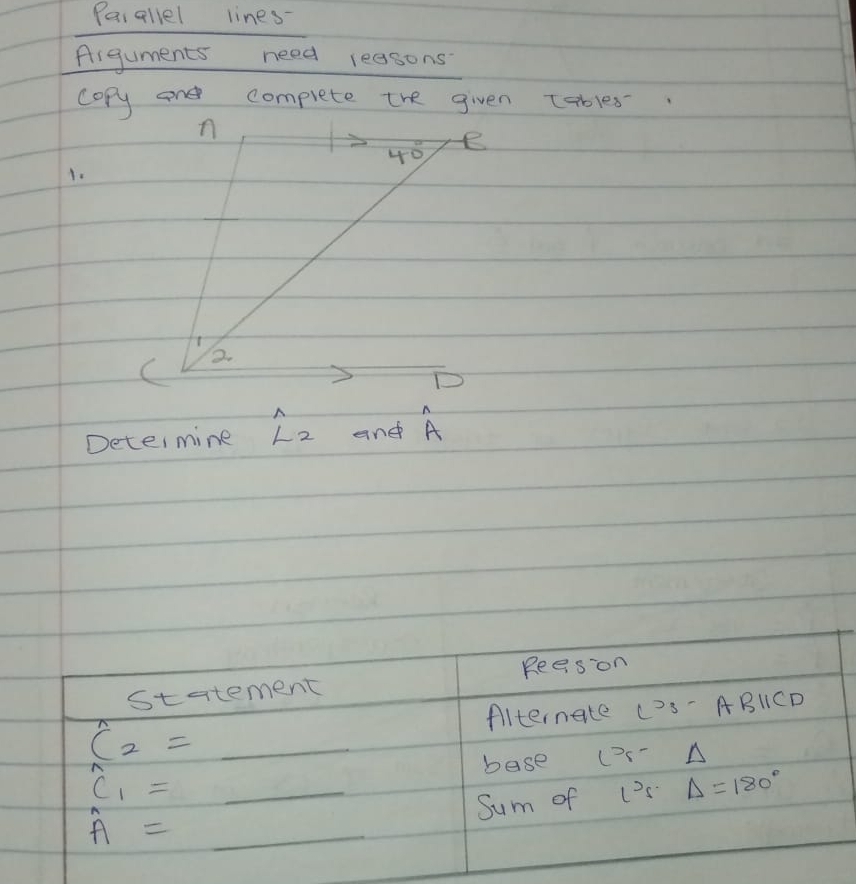 Parallel lines-
Arguments need reasons-
Copy and complete the given Tables- .
A B
40°
1.
1
2
C D
Determine Ĉ2 and Â
Statement Reason
Ĉ2 = ______ Alternate ∠s - AB||CD
Ĉ1 = ______ base ∠s - Δ
Â = ______ Sum of ∠s. Δ = 180°